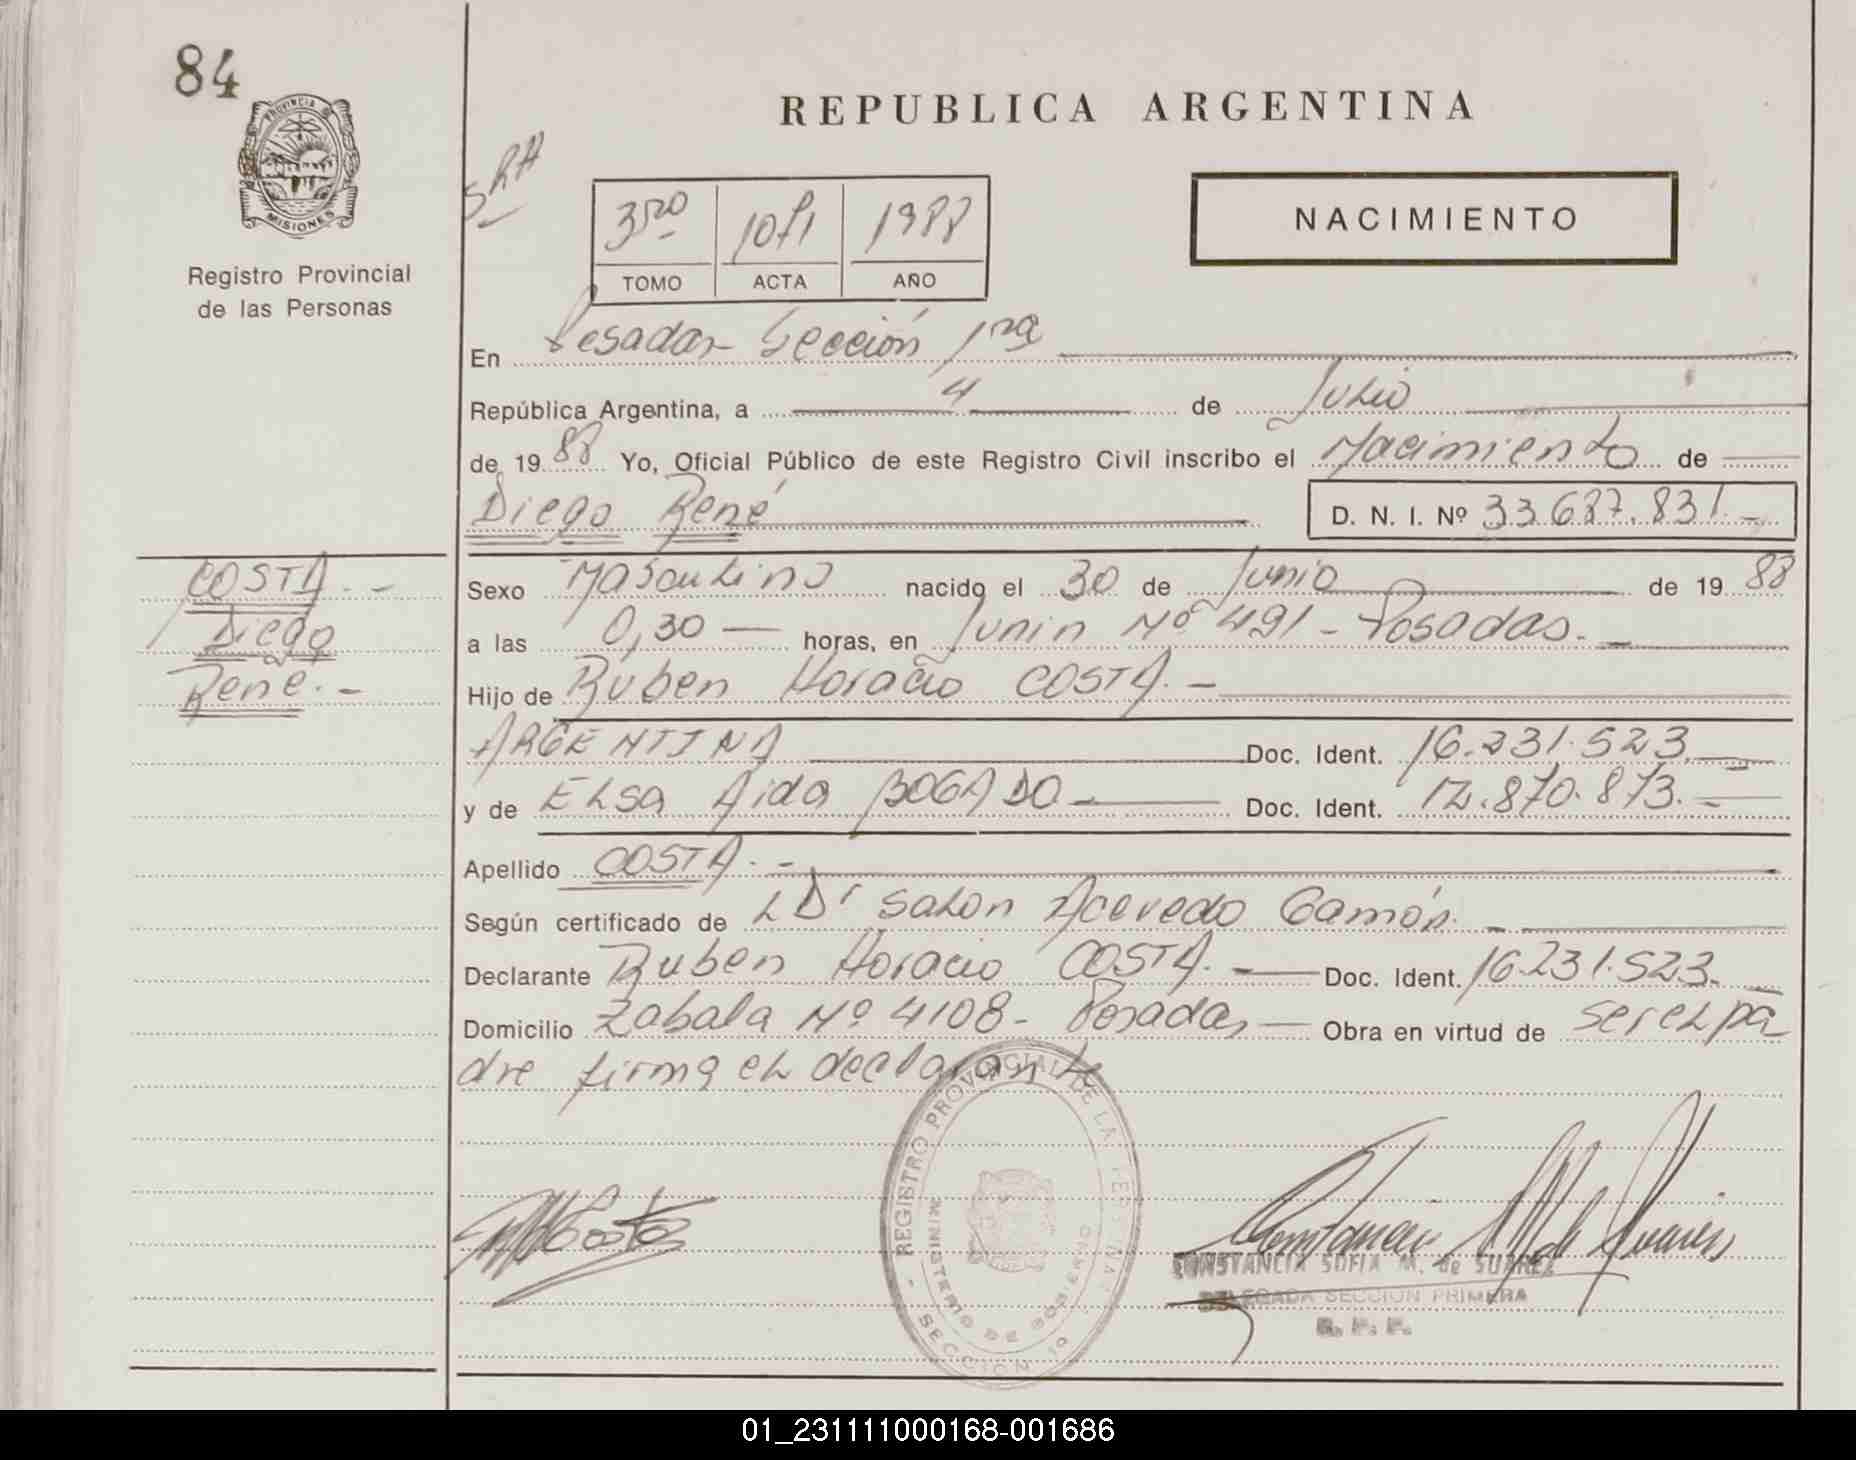 84
REPUBLICA ARGENTINA
PROVINCIA DE
MISIONES
Registro Provincial
de las Personas
3ro 1988
TOMO ACTA AÑO
NACIMIENTO
En Posadas - Sección 1ra
República Argentina, a 4 de Julio
de 1988 Yo, Oficial Público de este Registro Civil inscribo el Nacimiento de
Diego René D. N. I. Nº 33.687.831.-
COSTA.-
Diego
René.-
Sexo Masculino nacido el 30 de Junio de 1988
a las 0,30 horas, en Junin Nº 491 - Posadas.-
Hijo de Rúben Horacio COSTA.-
ARGENTINA Doc. Ident. 16.231.523.-
y de Elsa Aida BOGADO - Doc. Ident. 12.870.873.-
Apellido COSTA.-
Según certificado de Salon Acevedo Gamón.-
Declarante Ruben Horacio COSTA.- Doc. Ident. 16.231.523.-
Domicilio Zabala Nº 4108 - Posadas - Obra en virtud de ser el pa
dre firma el declarante
REGISTRO PROVINCIAL DE LAS PERSONAS
MINISTERIO DE GOBIERNO
SECCION 1º
Costa
Constancia M de Suarez
CONSTANCIA SOFIA M. de SUAREZ
DELEGADA SECCION PRIMERA
R. P. P.
01_231111000168-001686